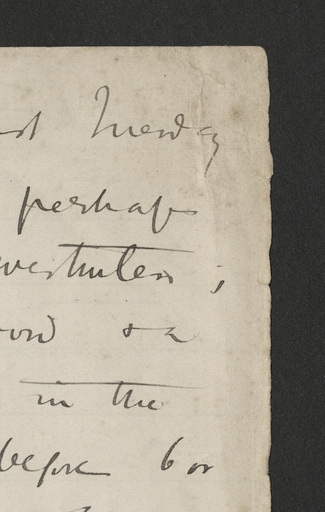 st Tuesday
perhaps
vertheless ;
word & a
in the
before 6 or